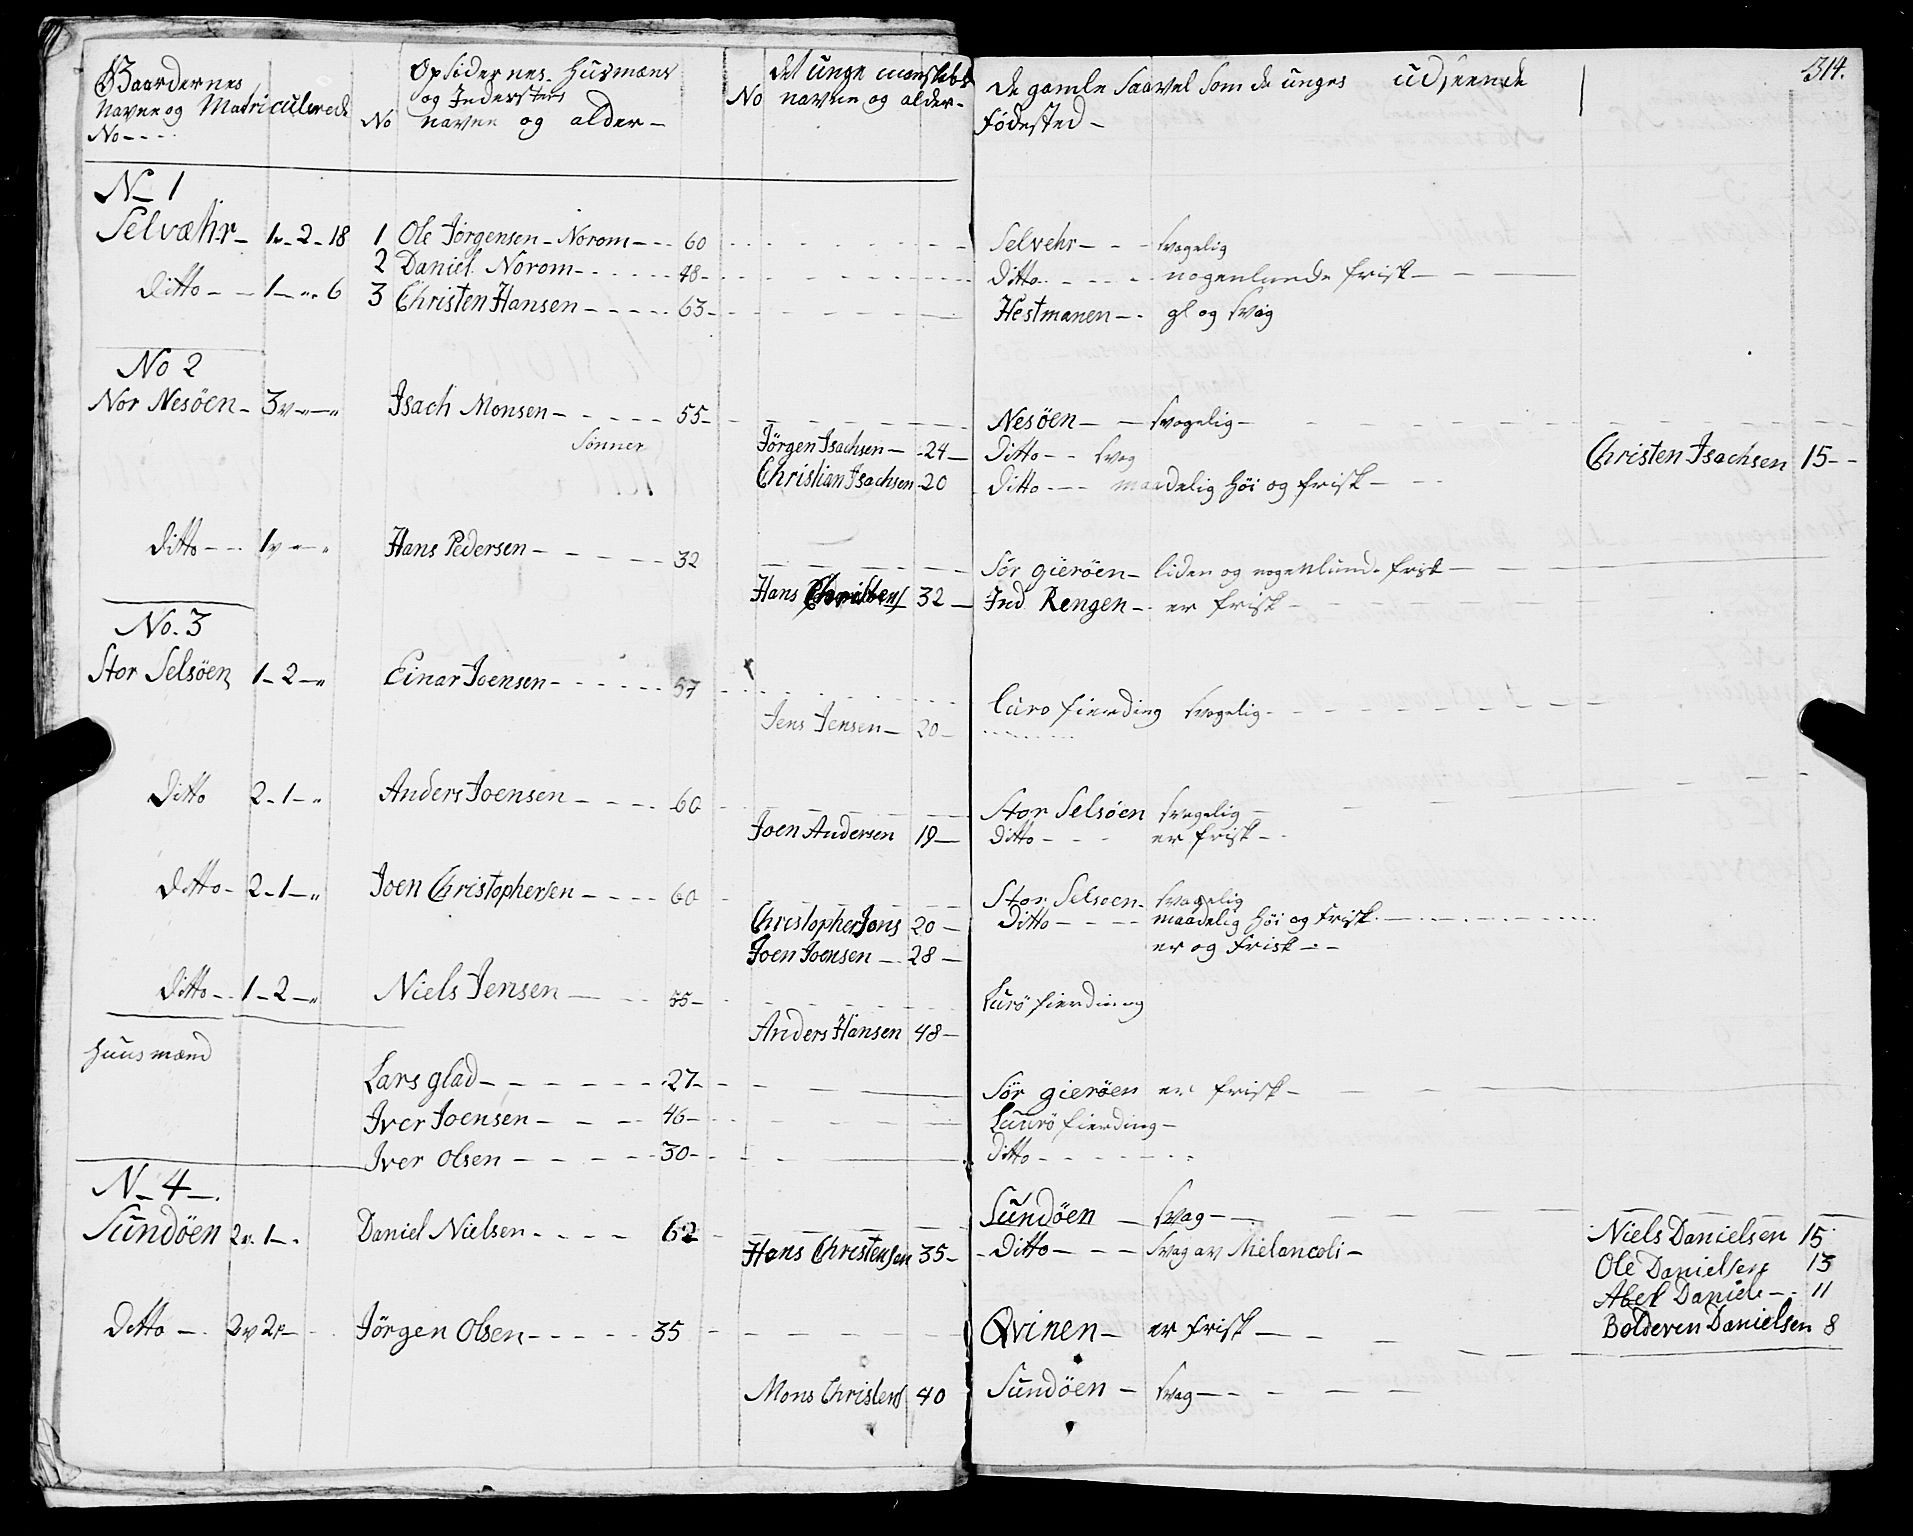 Gaardernes Navne og Matriculerede No ----
No Opsidernes Husmæns og Indersters navne og alder -
No det unge manskabs navne og alder -
De gamle saavel som de unges udseende
fødested -
314.
N 1
Selvæhr - 1 - 2 - 18 1 Ole Jörgensen - Norom --- 60 Selvehr --- svagelig
2 Daniel Norom ----- 48 - Ditto ---- nogenlunde frisk -
Ditto -- 1 - " - 6 3 Christen Hansen ----- 63 - Hestmanen -- gl og svag
No 2
Nor Nesöen - 3 v - " - " Isach Monsen ----- 55 - Nesöen -- svagelig -
Sönner Jörgen Isachsen - 24 - Ditto -- svag Christen Isachsen 15 --
Christian Isachsen 20 Ditto --- maadelig höi og frisk -
Ditto -- 1 v - " - " Hans Pedersen ----- 32 Sör gieröen - liden og nogenlunde frisk -
Hans Christens 32 - Ind Rengen -- er frisk -
No. 3
Stor Selsöen 1 - 2 - " Einar Joensen ------ 57 Luro fierding svagelig -
Jens Jensen - 20 -
Ditto 2 - 1 - " Anders Joensen ---- 60 Stor Selsöen svagelig -
Joen Andersen 19 - Ditto --- er frisk --
Ditto - 2 - 1 - " Joen Christophersen ---- 60 Stor Selsoen - svagelig
Christopher Jons 20 - Ditto ---- maadelig höi og frisk -
Joen Joensen - 28 - er og frisk ---
Ditto -- 1 - 2 - " Niels Jensen --- 35 - Lurö fierding
Anders Hansen 48 -
huusmænd
Lars glad ------ 27 - Sör gieröen er frisk -
Iver Joensen ---- 46 - Luurö fierding -
Iver Olsen ----- 30 - Ditto ------
N - 4 -
Sundöen 2 v. 1 - - Daniel Nielsen ---- 62 - Sundöen - svag -- Niels Danielsen 15
Hans Christensen 35 - Ditto --- svag av Melancoli - Ole Danielsen 13
Abel Daniels -- 11
Ditto -- 2 v 2 - Jörgen Olsen ----- 35 Qvinen - er frisk - Bolderen Danielsen 8
Mons Christens 40 Sundöen - svag --